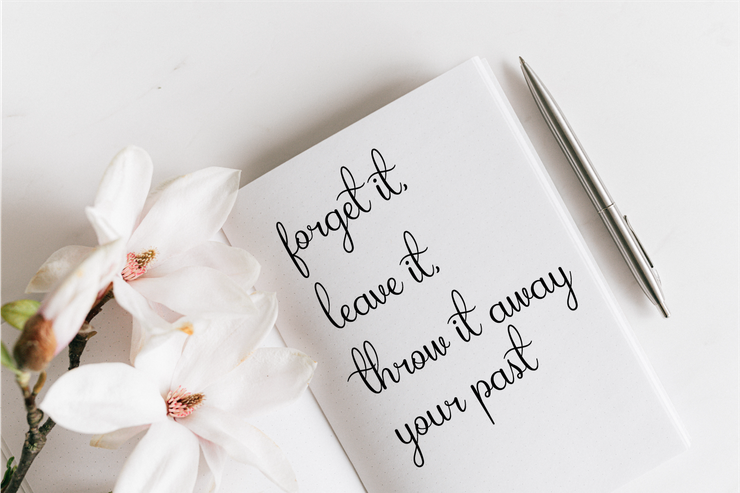 forget it,
leave it,
throw it away
your past